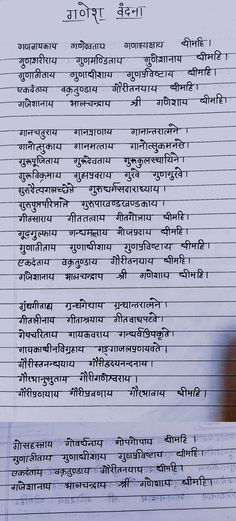 गणेश वंदना
गणनायकाय गणदेवताय गणाध्यक्षाय धीमहि।
गुणशरीराय गुणमण्डिताय गुणेशानाय धीमहि।
गुणातीताय गुणाधीशाय गुणप्रविष्टाय धीमहि।
एकदंताय वक्रतुण्डाय गौरीतनयाय धीमहि।
गजेशानाय भालचन्द्राय श्री गणेशाय धीमहि।
गानचतुराय गानप्राणाय गानान्तरात्मने।
गानोत्सुकाय गानमत्ताय गानोत्सुकमनसे।
गुरुपूजिताय गुरुदेवताय गुरुकुलस्थायिने।
गुरुविक्रमाय गुह्यप्रवराय गुरवे गुणगुरवे।
गुरुदैत्यगलच्छेत्रे गुरुधर्मसदाराध्याय।
गुरुपुत्रपरित्रात्रे गुरुपाखण्डखण्डकाय।
गीतसाराय गीततत्वाय गीतगोत्राय धीमहि।
गूढगुल्फाय गन्धमत्ताय गोजयप्रदाय धीमहि।
गुणातीताय गुणाधीशाय गुणप्रविष्टाय धीमहि।
एकदंताय वक्रतुण्डाय गौरीतनयाय धीमहि।
गजेशानाय भालचन्द्राय श्री गणेशाय धीमहि।
ग्रंथगीताय ग्रन्थगेयाय ग्रन्थान्तरात्मने।
गीतलीनाय गीताश्रयाय गीतवाद्यपटवे।
गेयचरिताय गायकवराय गन्धर्वप्रियकृते।
गायकाधीनविग्रहाय गङ्गाजलप्रणयवते।
गौरीस्तनन्धयाय गौरीहृदयनन्दनाय।
गौरभानुसुताय गौरीगणेश्वराय।
गौरीप्रणयाय गौरीप्रवणाय गौरभावाय धीमहि।
गोसहस्राय गोवर्धनाय गोपगोपाय धीमहि।
गुणातीताय गुणाधीशाय गुणप्रविष्टाय धीमहि।
एकदंताय वक्रतुण्डाय गौरीतनयाय धीमहि।
गजेशानाय भालचन्द्राय श्री गणेशाय धीमहि।